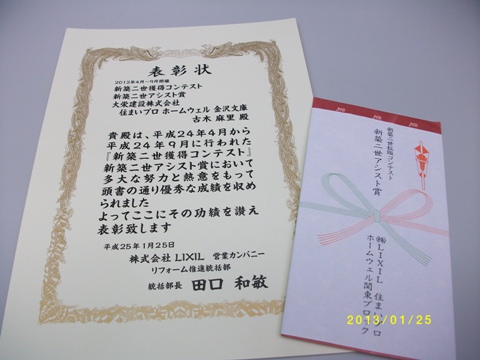 表彰状
2012年4月～9月開催
新築二世獲得コンテスト
新築二世アシスト賞
大栄建設株式会社
住まいプロ ホームウェル 金沢文庫
古木 麻里 殿
貴殿は、平成24年4月から
平成24年9月に行われた
『新築二世獲得コンテスト』
新築二世アシスト賞において
多大な努力と熱意をもって
頭書の通り優秀な成績を収め
られました
よってここにその功績を讃え
表彰致します
平成25年1月25日
株式会社 LIXIL 営業カンパニー
リフォーム推進統括部
統括部長 田口 和敏
新築二世獲得コンテスト
新築二世アシスト賞
㈱LIXIL 住まいプロ
ホームウェル関東ブロック
2013/01/25